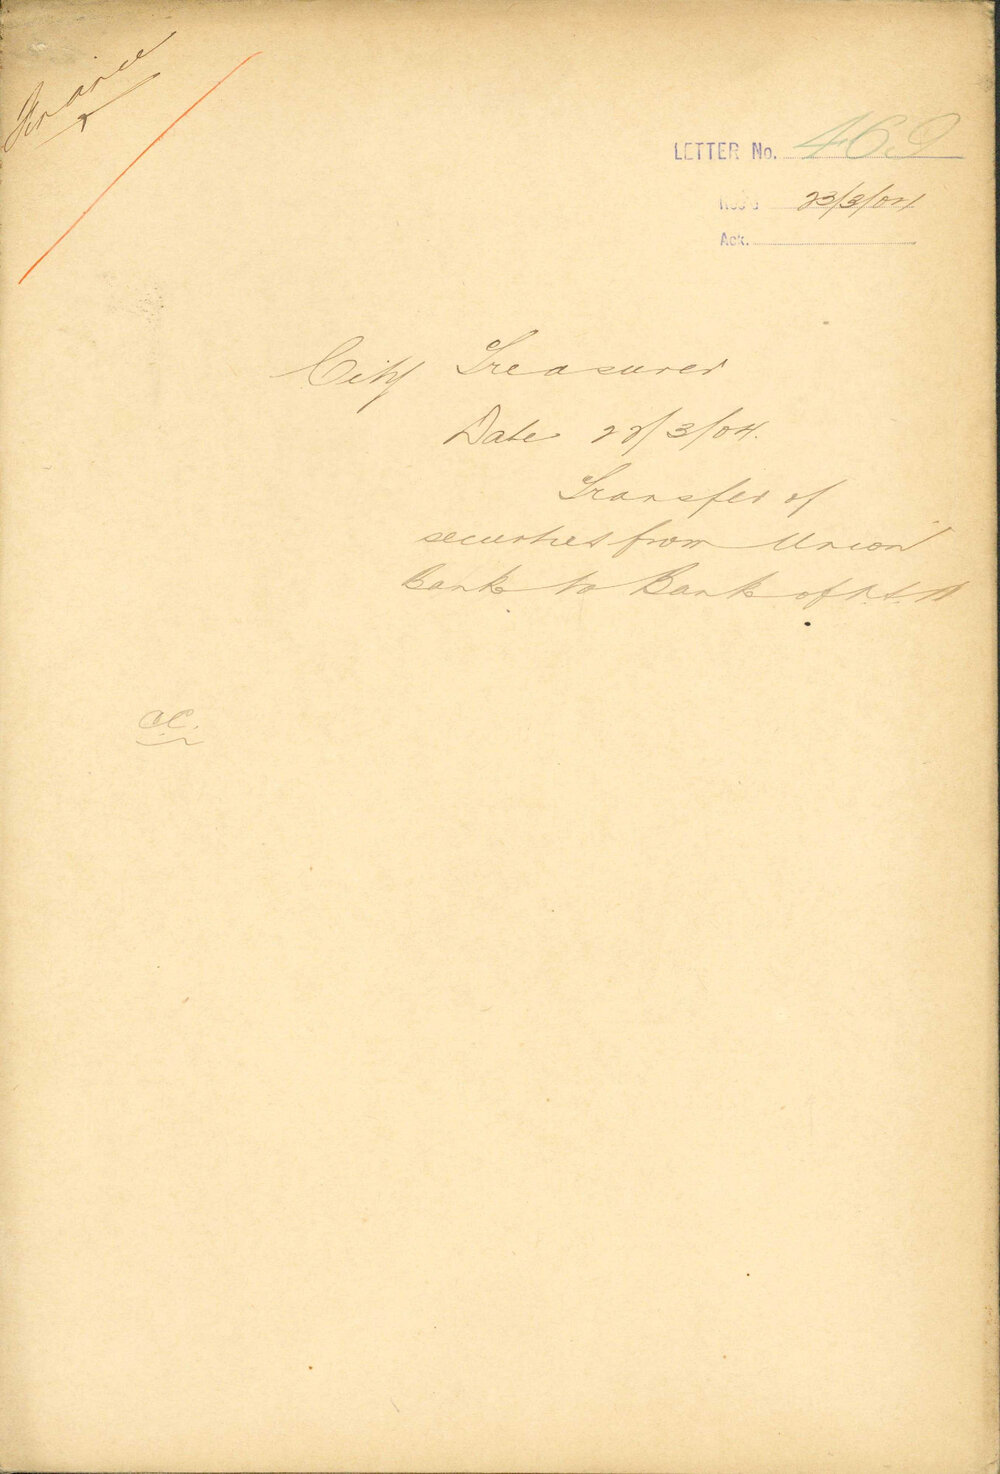 Finance
LETTER No. 469
Rec'd 23/3/04
Ack.
City Treasurer
Date 22/3/04.
Transfer of
securities from Union
Bank to Bank of N.S.W